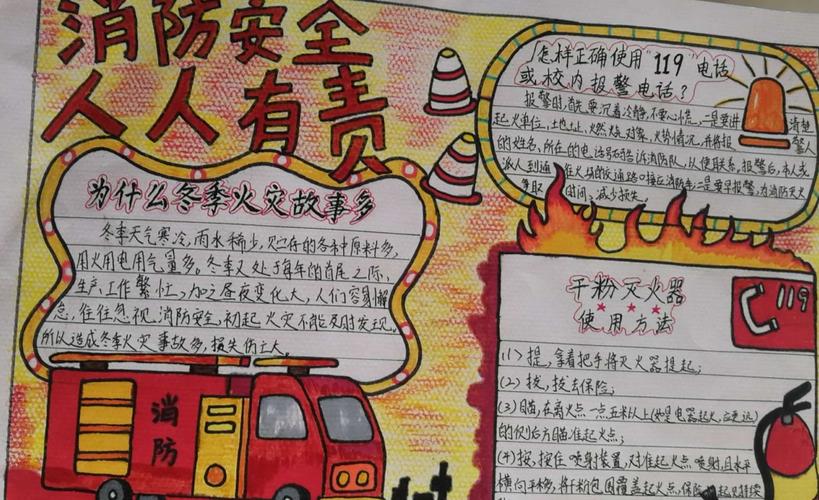 消防安全
人人有责
为什么冬季火灾故事多
冬季天气寒冷,雨水稀少,贮存的各种原料多,
用火用电用气量多。冬季又处于每年的首尾之际,
生产,工作繁忙,加之昼夜变化大,人们容易懈
怠,往往忽视消防安全,初起火灾不能及时发现,
所以造成冬季火灾事故多,损失伤亡大。
消
防
怎样正确使用"119"电话
或校内报警电话?
报警时,首先要沉着冷静,不要心慌,一是要讲清楚
起火单位,土地止,燃烧对象,火势情况,并将报警人
的姓名,所在的电话号码告诉消防队,以便联系,报警后,本人或
派人到通往火场的交通路口接应消防车;二是要早报警,为消防灭火
争取时间,减少损失。
119
干粉灭火器
使用方法
(1)提,拿着把手将灭火器提起;
(2)拔,拔去保险;
(3)瞄,在离火点一点五米以上(如是电器起火,应更远)
的侧后方瞄准起火点;
(4)按,按住喷射装置,对准起火点喷射,且水平
横向平移,将干粉包围覆盖起火点,保险起见持续